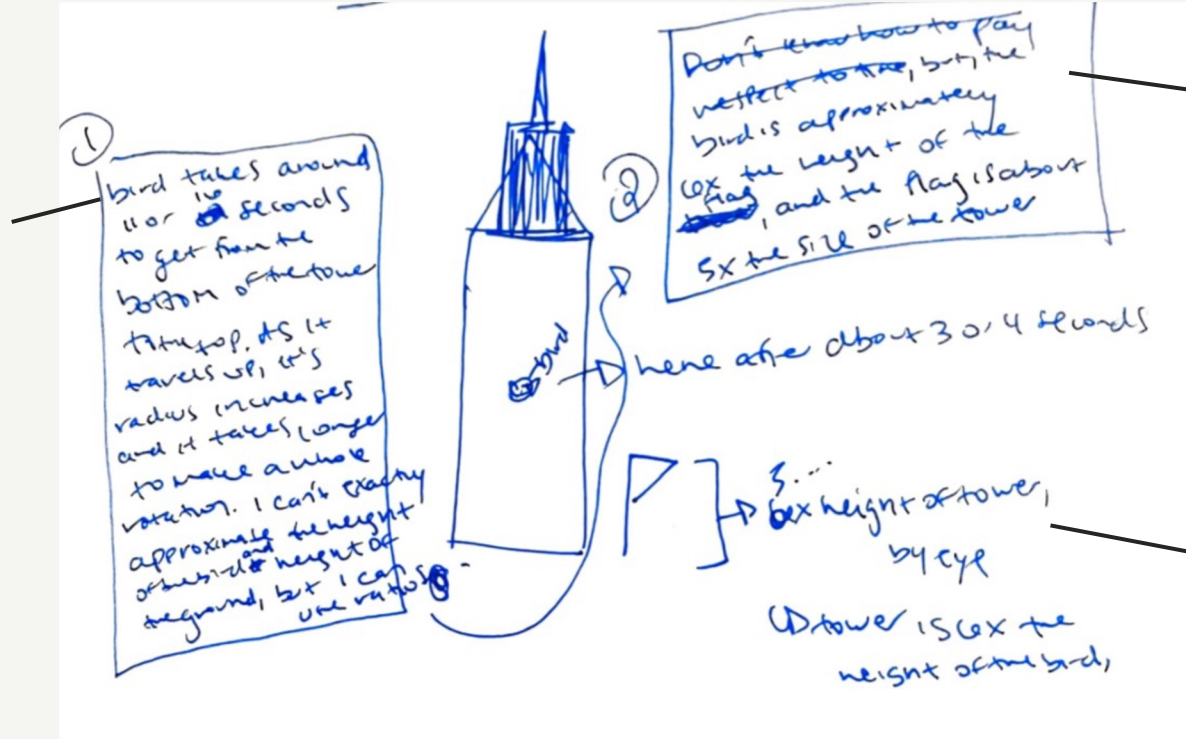 ①
bird takes around
11 or 12 seconds
to get from the
bottom of the tower
to the top. As it
travels up, it's
radius increases
and it takes longer
to make a whole
rotation. I can't exactly
approximate the height
of the bird and height of
the ground, but I can
use ratios
bird
②
Don't know how to pay
respect to time, but, the
bird is approximately
6x the height of the
flag, and the flag is about
5x the size of the tower
here after about 3 or 4 seconds
5...
6x height of tower,
by eye
tower is 6x the
height of the bird,